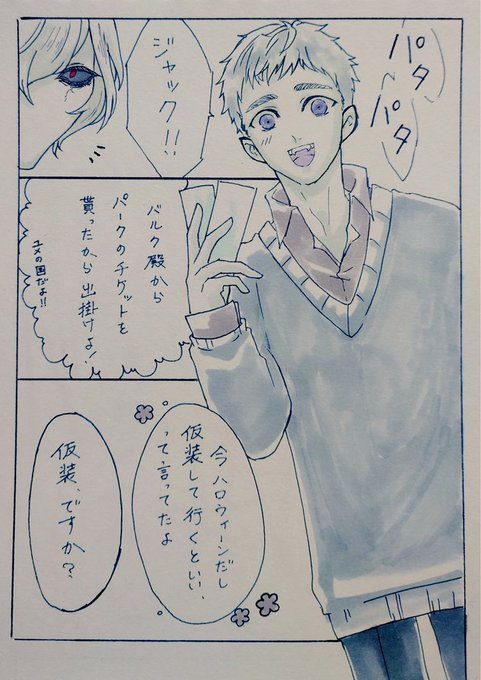 パタ
パタ
ジャック!!
バルク殿から
パークのチケットを
貰ったから出掛けよ!
ユメの国だよ!!
今ハロウィーンだし
仮装して行くといい、
って言ってたよ
仮装、ですか?